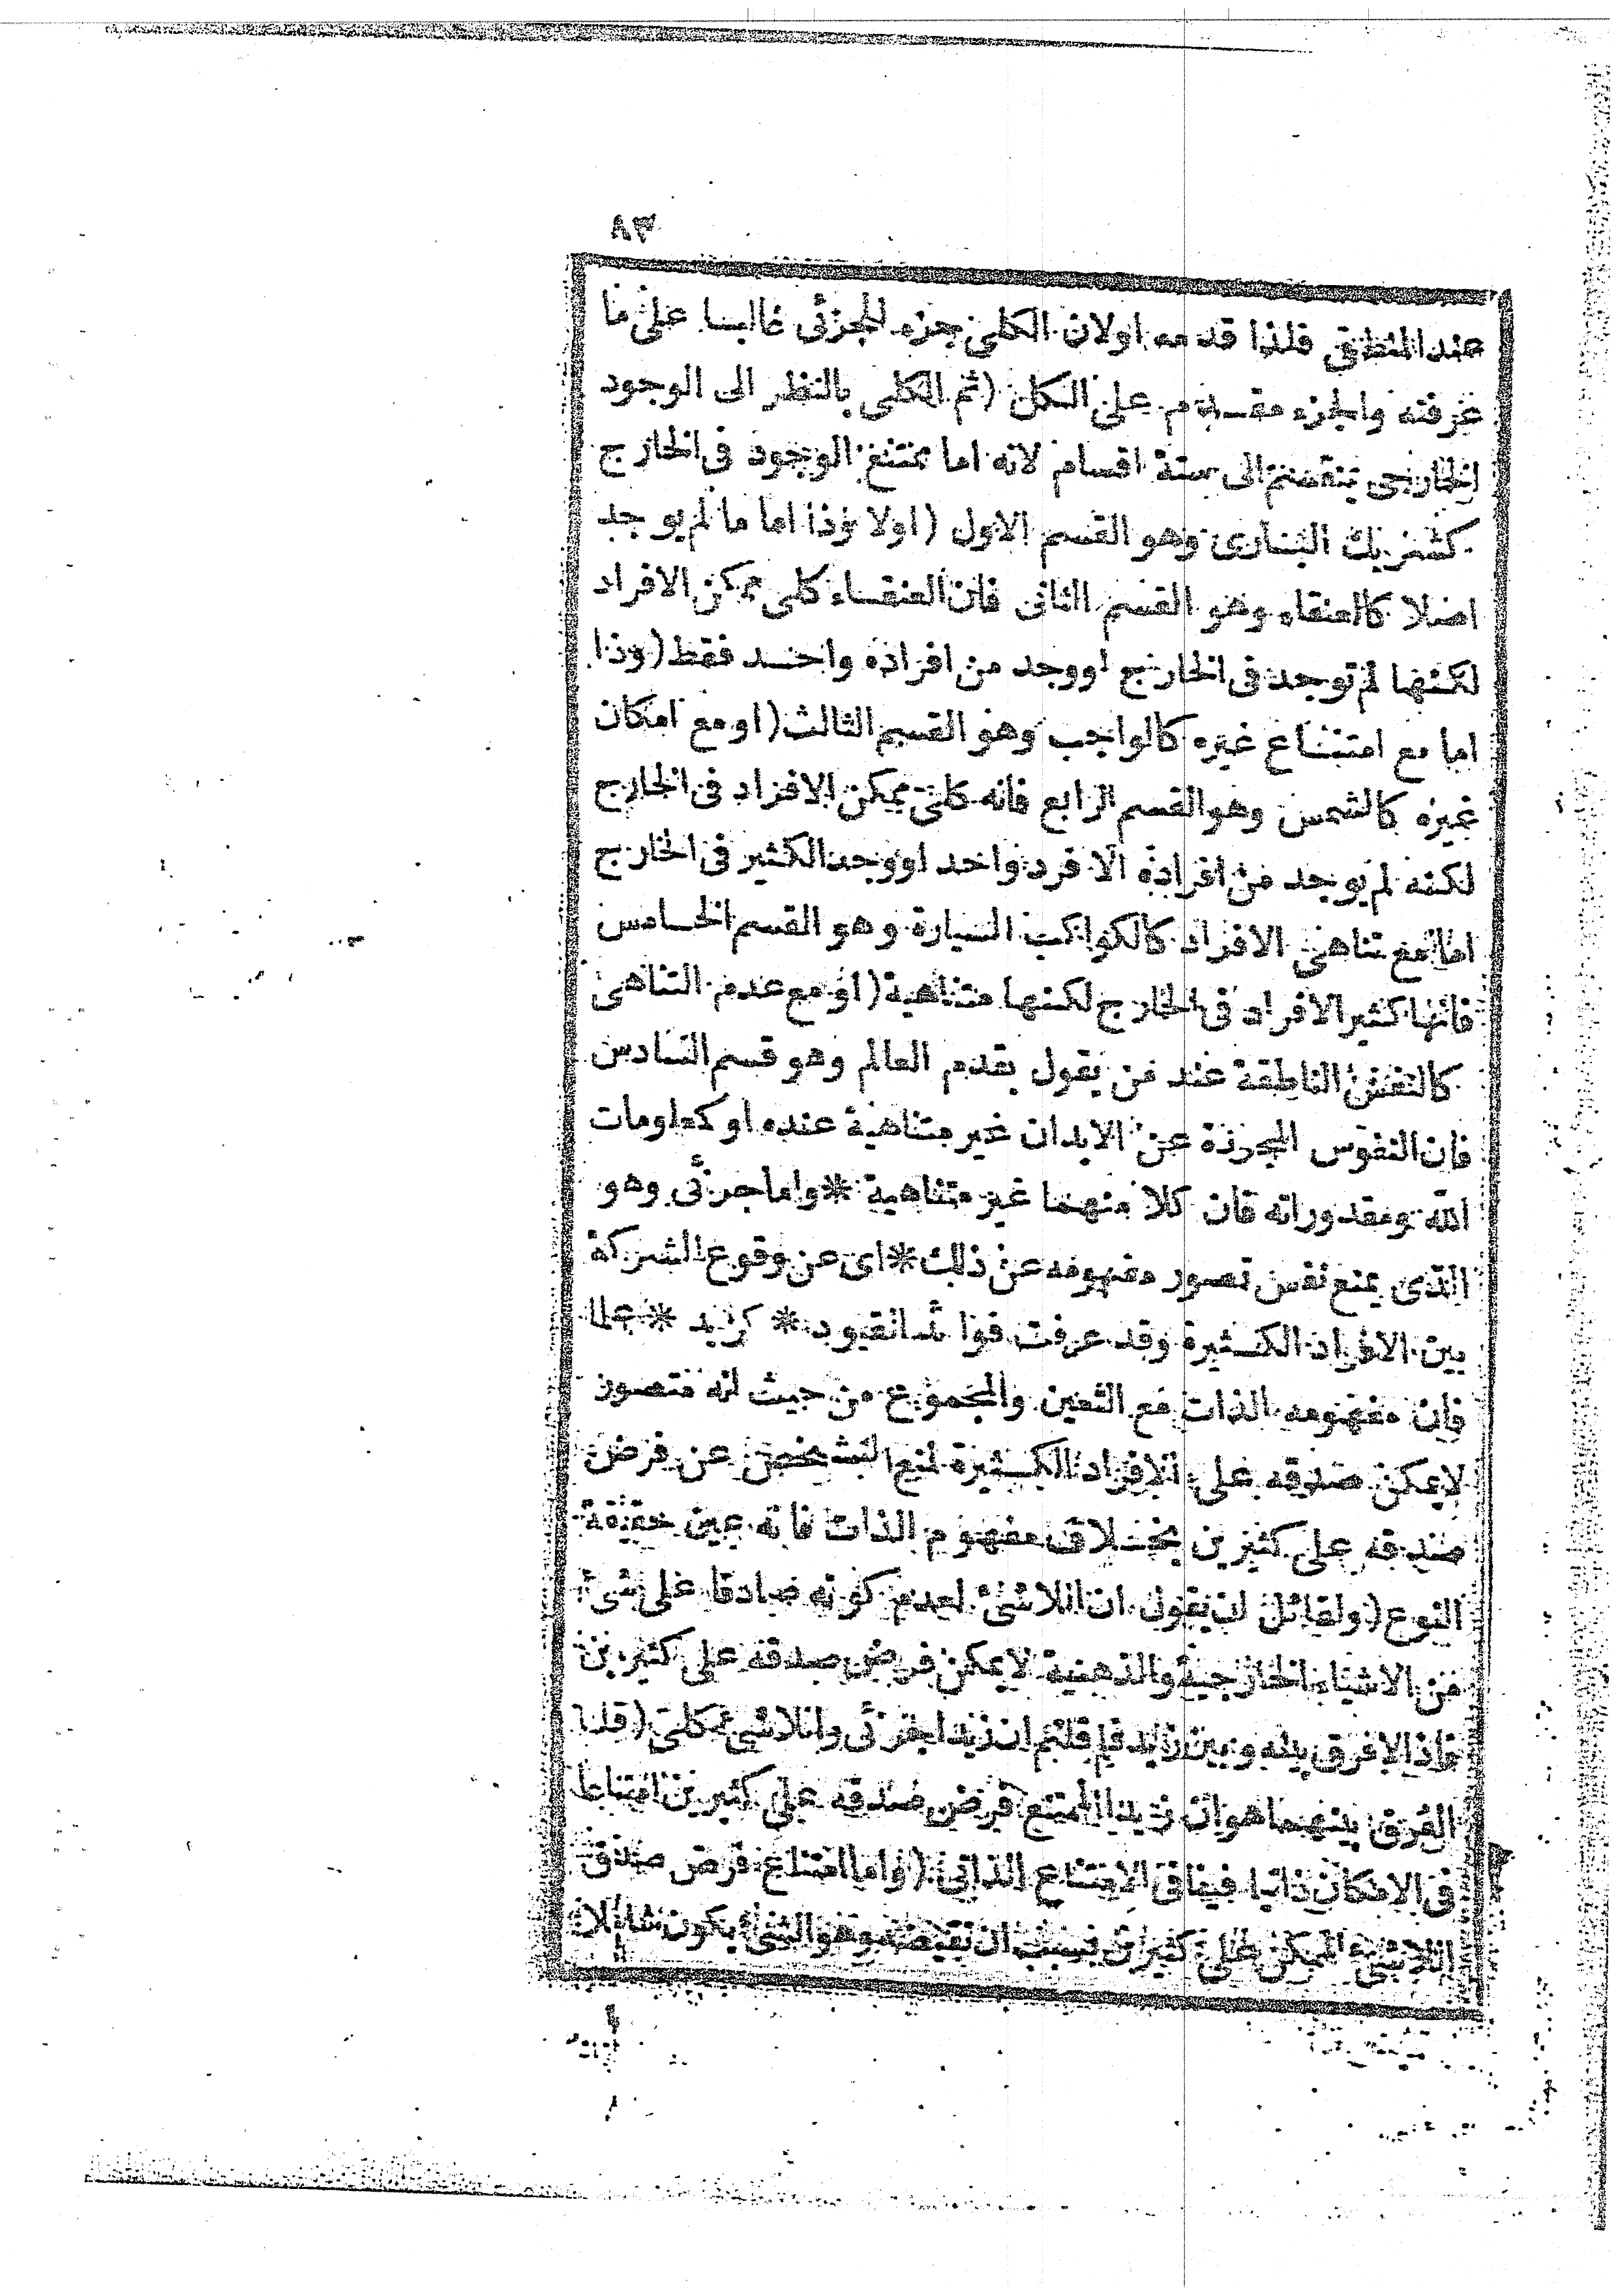 ٨٣
عند المنطقى فلذا قدمه اولان الكلى جزء الجزئى غالبا على ما
عرفته والجزء مقدم على الكل (ثم الكلى بالنظر الى الوجود
الخارجى ينقسم الى ستة اقسام لانه اما ممتنع الوجود فى الخارج
كشريك البارى وهو القسم الاول (اولا وذا اما ما لم يوجد
اصلا كالعنقاء وهو القسم الثانى فان العنقاء كلى ممكن الافراد
لكنها لم توجد فى الخارج اووجد من افراده واحد فقط (وذا
اما مع امتناع غيره كالواجب وهو القسم الثالث (او مع امكان
غيره كالشمس وهو القسم الرابع فانه كلى ممكن الافراد فى الخارج
لكنه لم يوجد من افراده الا فرد واحد اووجد الكثير فى الخارج
اما مع تناهى الافراد كالكواكب السيارة وهو القسم الخامس
فانها كثير الافراد فى الخارج لكنها متناهية (او مع عدم التناهى
كالنفس الناطقة عند من يقول بقدم العالم وهو قسم السادس
فان النفوس المجردة عن الابدان غير متناهية عنده او كمعلومات
الله ومقدوراته فان كلا منهما غير متناهية * واما جزئى وهو
الذى يمنع نفس تصور مفهومه عن ذلك * اى عن وقوع الشركة
بين الافراد الكثيرة وقد عرفت فوائد القيود * كزيد * علما
فان مفهومه الذات مع التعين والمجموع من حيث انه متصور
لايمكن صدقه على الافراد الكثيرة لمنع التشخص عن فرض
صدقه على كثيرين بخلاف مفهوم الذات فانه عين حقيقة
النوع (ولقائل ان يقول ان اللاشئ لعدم كونه صادقا على شئ
من الاشياء الخارجية والذهنية لايمكن فرض صدقه على كثيرين
فاذا لافرق بينه وبين زيد فلم قلتم ان زيدا جزئى واللاشئ كلى (قلنا
الفرق بينهما هوان زيدا الممتنع فرض صدقه على كثيرين امتناعا
فى الامكان ذاتيا فينافى الامتناع الذاتى (واما امتناع فرض صدق
اللاشئ الممكن على كثيرين فبسبب ان نقيضه وهو الشئ يكون شاملا